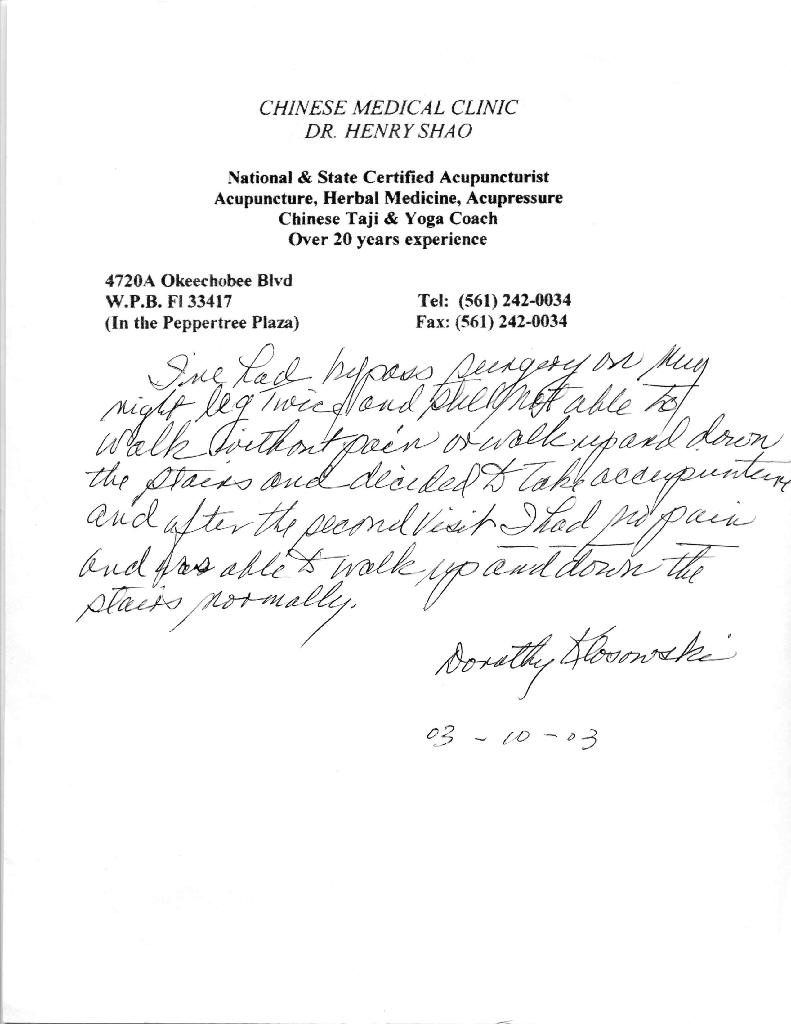 CHINESE MEDICAL CLINIC
DR. HENRY SHAO
National & State Certified Acupuncturist
Acupuncture, Herbal Medicine, Acupressure
Chinese Taji & Yoga Coach
Over 20 years experience
4720A Okeechobee Blvd
W.P.B. Fl 33417 Tel: (561) 242-0034
(In the Peppertree Plaza) Fax: (561) 242-0034
I've had bypass surgery on my
right leg twice and still not able to
walk without pain or walk up and down
the stairs and decided to take accupunture
and after the second visit I had no pain
and was able to walk up and down the
stairs normally.
Dorothy Klosowski
03-10-03